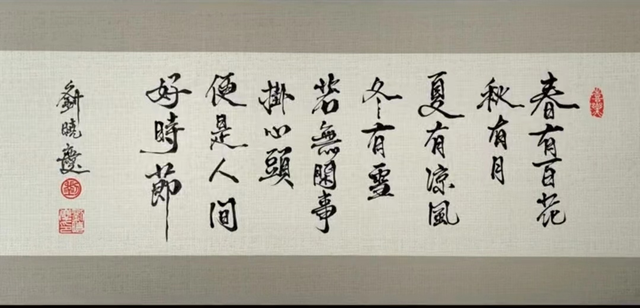 春有百花
秋有月
夏有凉風
冬有雪
若無閒事
掛心頭
便是人间
好時節
劉曉慶